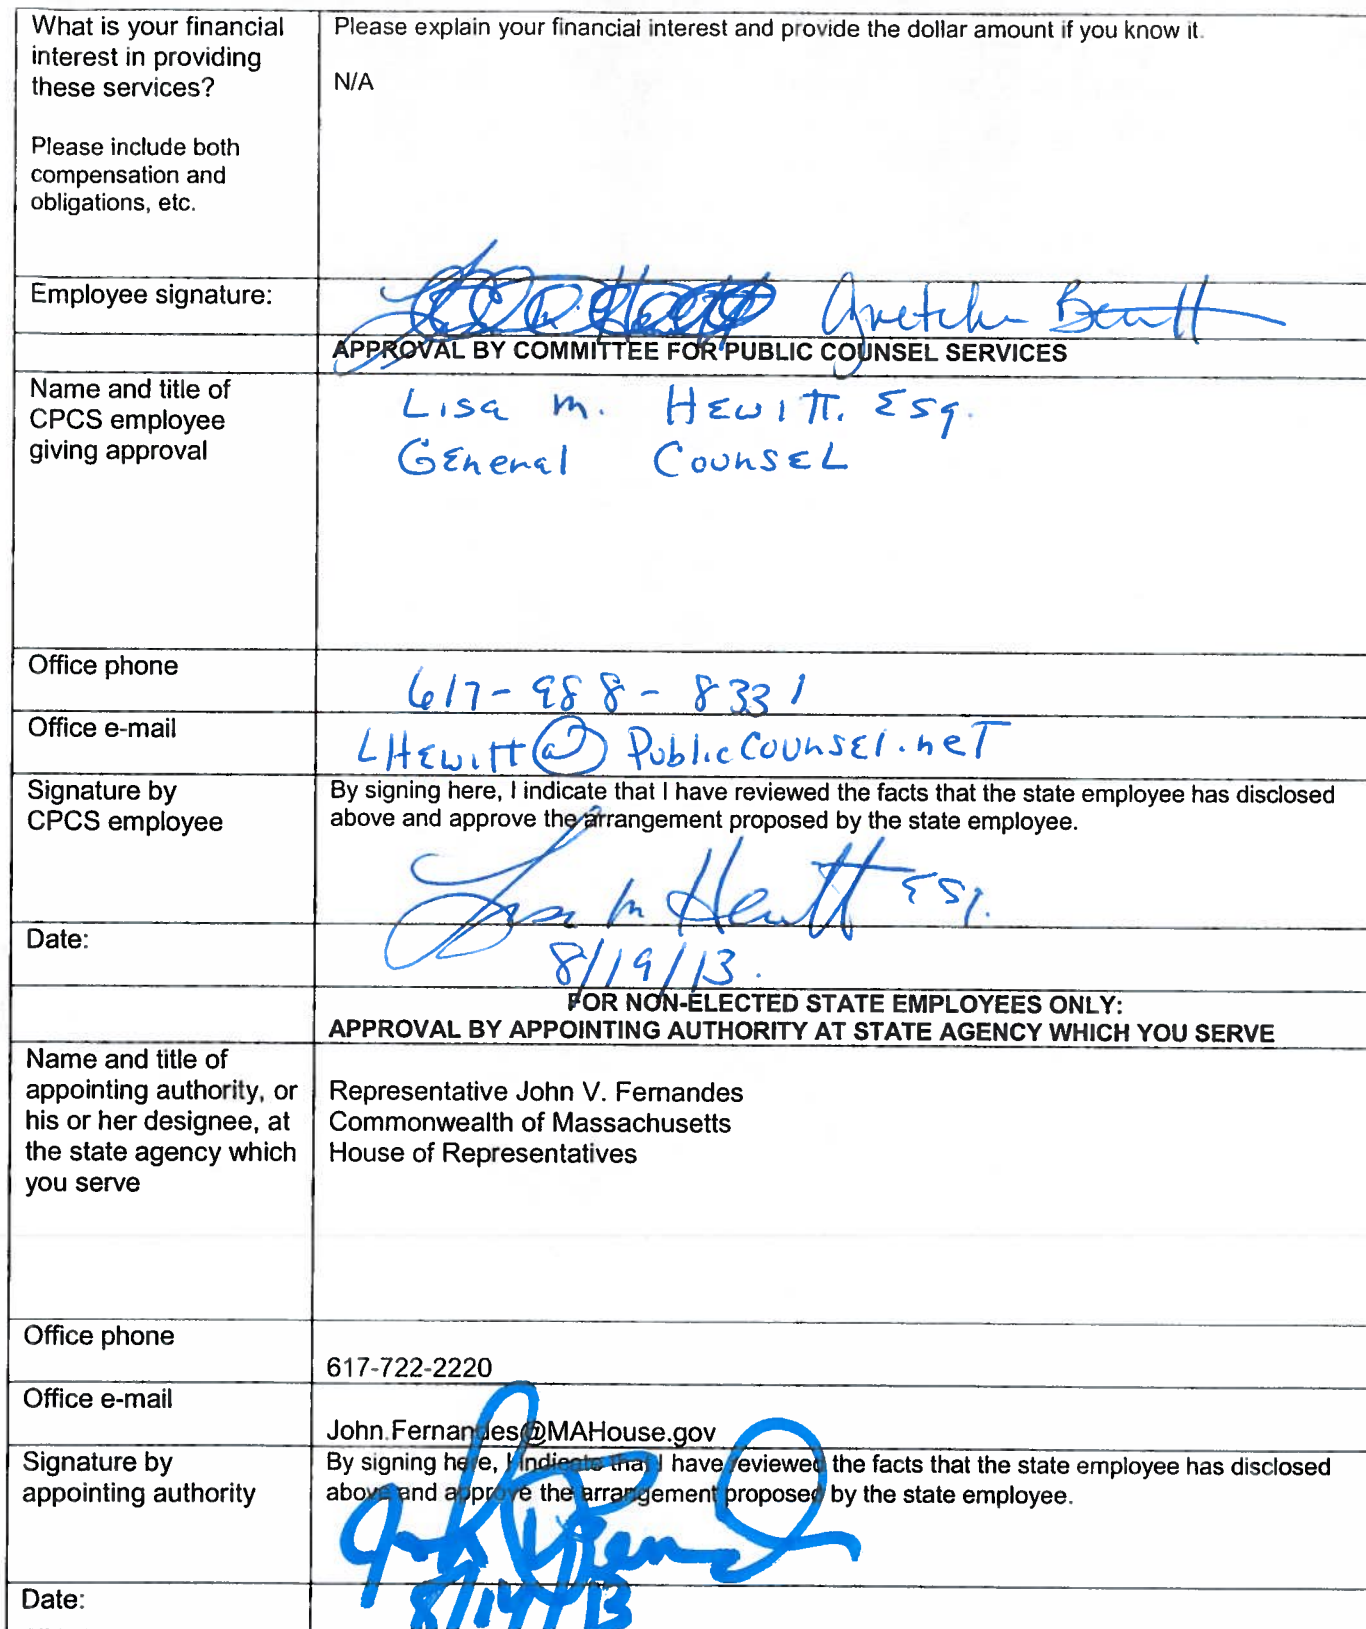 What is your financial
interest in providing
these services?
Please include both
compensation and
obligations, etc.
Please explain your financial interest and provide the dollar amount if you know it.
N/A
Employee signature:
Gretchen Bennett
APPROVAL BY COMMITTEE FOR PUBLIC COUNSEL SERVICES
Name and title of
CPCS employee
giving approval
Lisa m. HEWITT. Esq.
GEneral CounsEL
Office phone
617-988-8331
Office e-mail
LHEwitt@PublicCounsel.neT
Signature by
CPCS employee
By signing here, I indicate that I have reviewed the facts that the state employee has disclosed
above and approve the arrangement proposed by the state employee.
Lisa M Hewitt Esq.
Date:
8/19/13.
FOR NON-ELECTED STATE EMPLOYEES ONLY:
APPROVAL BY APPOINTING AUTHORITY AT STATE AGENCY WHICH YOU SERVE
Name and title of
appointing authority, or
his or her designee, at
the state agency which
you serve
Representative John V. Fernandes
Commonwealth of Massachusetts
House of Representatives
Office phone
617-722-2220
Office e-mail
John.Fernandes@MAHouse.gov
Signature by
appointing authority
By signing here, I indicate that I have reviewed the facts that the state employee has disclosed
above and approve the arrangement proposed by the state employee.
Date:
8/14/13